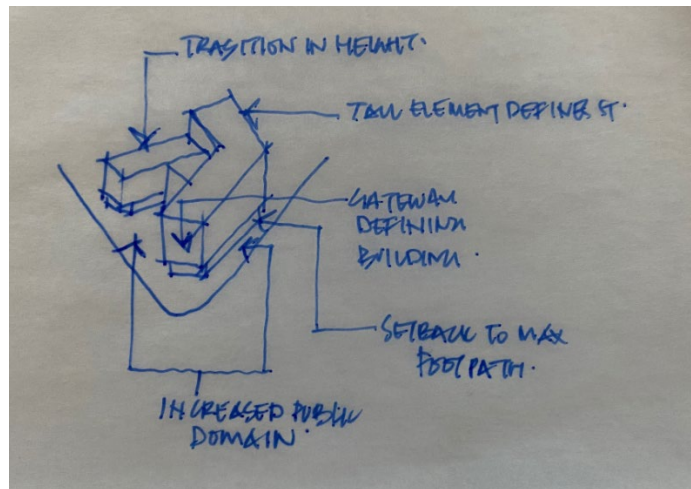 TRASITION IN HEIGHT.
TALL ELEMENT DEFINES ST.
GATEWAY
DEFINING
BUILDING.
SETBACK TO MAX
FOOTPATH.
INCREASED PUBLIC
DOMAIN.